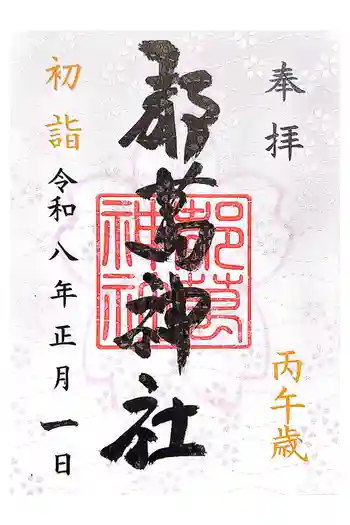 奉拝
丙午歳
都萬神社
都萬神社
初詣
令和八年正月一日